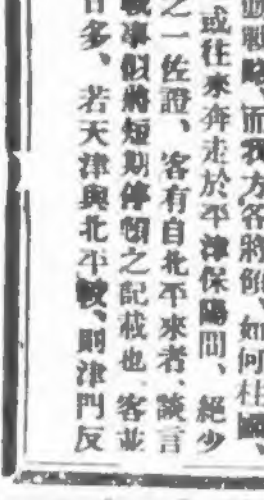 並戰略、而我方各將領、如何杜
或往來奔走於平津保陽間、絕少
之一佐證、客有自北平來者、談言
戰事似將短期停頓之記載也、客並
日多、若天津與北平較、則津門反